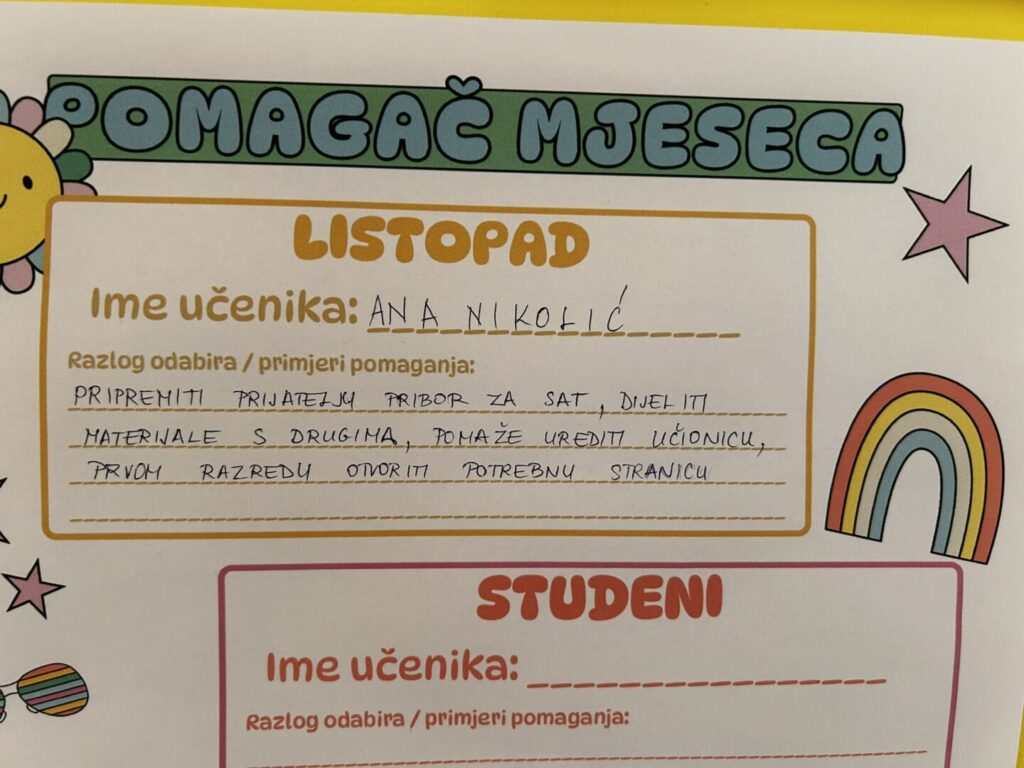 POMAGAČ MJESECA
LISTOPAD
Ime učenika: ANA NIKOLIĆ
Razlog odabira / primjeri pomaganja:
PRIPREMITI PRIJATELJU PRIBOR ZA SAT, DIJELITI
MATERIJALE S DRUGIMA, POMAŽE UREDITI UČIONICU,
PRVOM RAZREDU OTVORITI POTREBNU STRANICU
STUDENI
Ime učenika:
Razlog odabira / primjeri pomaganja: